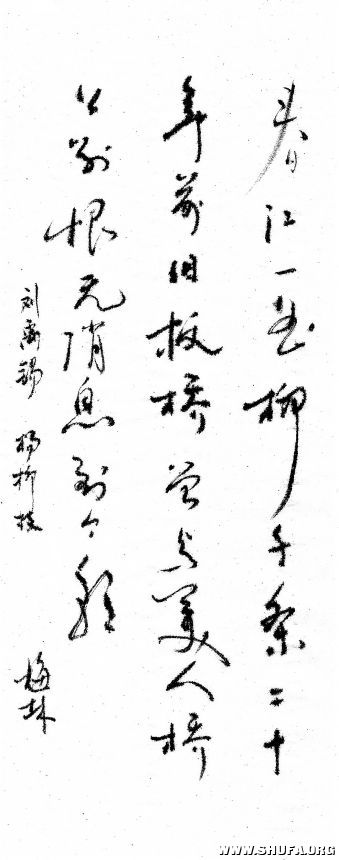 春江一曲柳千条二十
年前旧板桥曾与美人桥
上别恨无消息到今朝
刘禹锡 杨柳枝 梅林
WWW.SHUFA.ORG